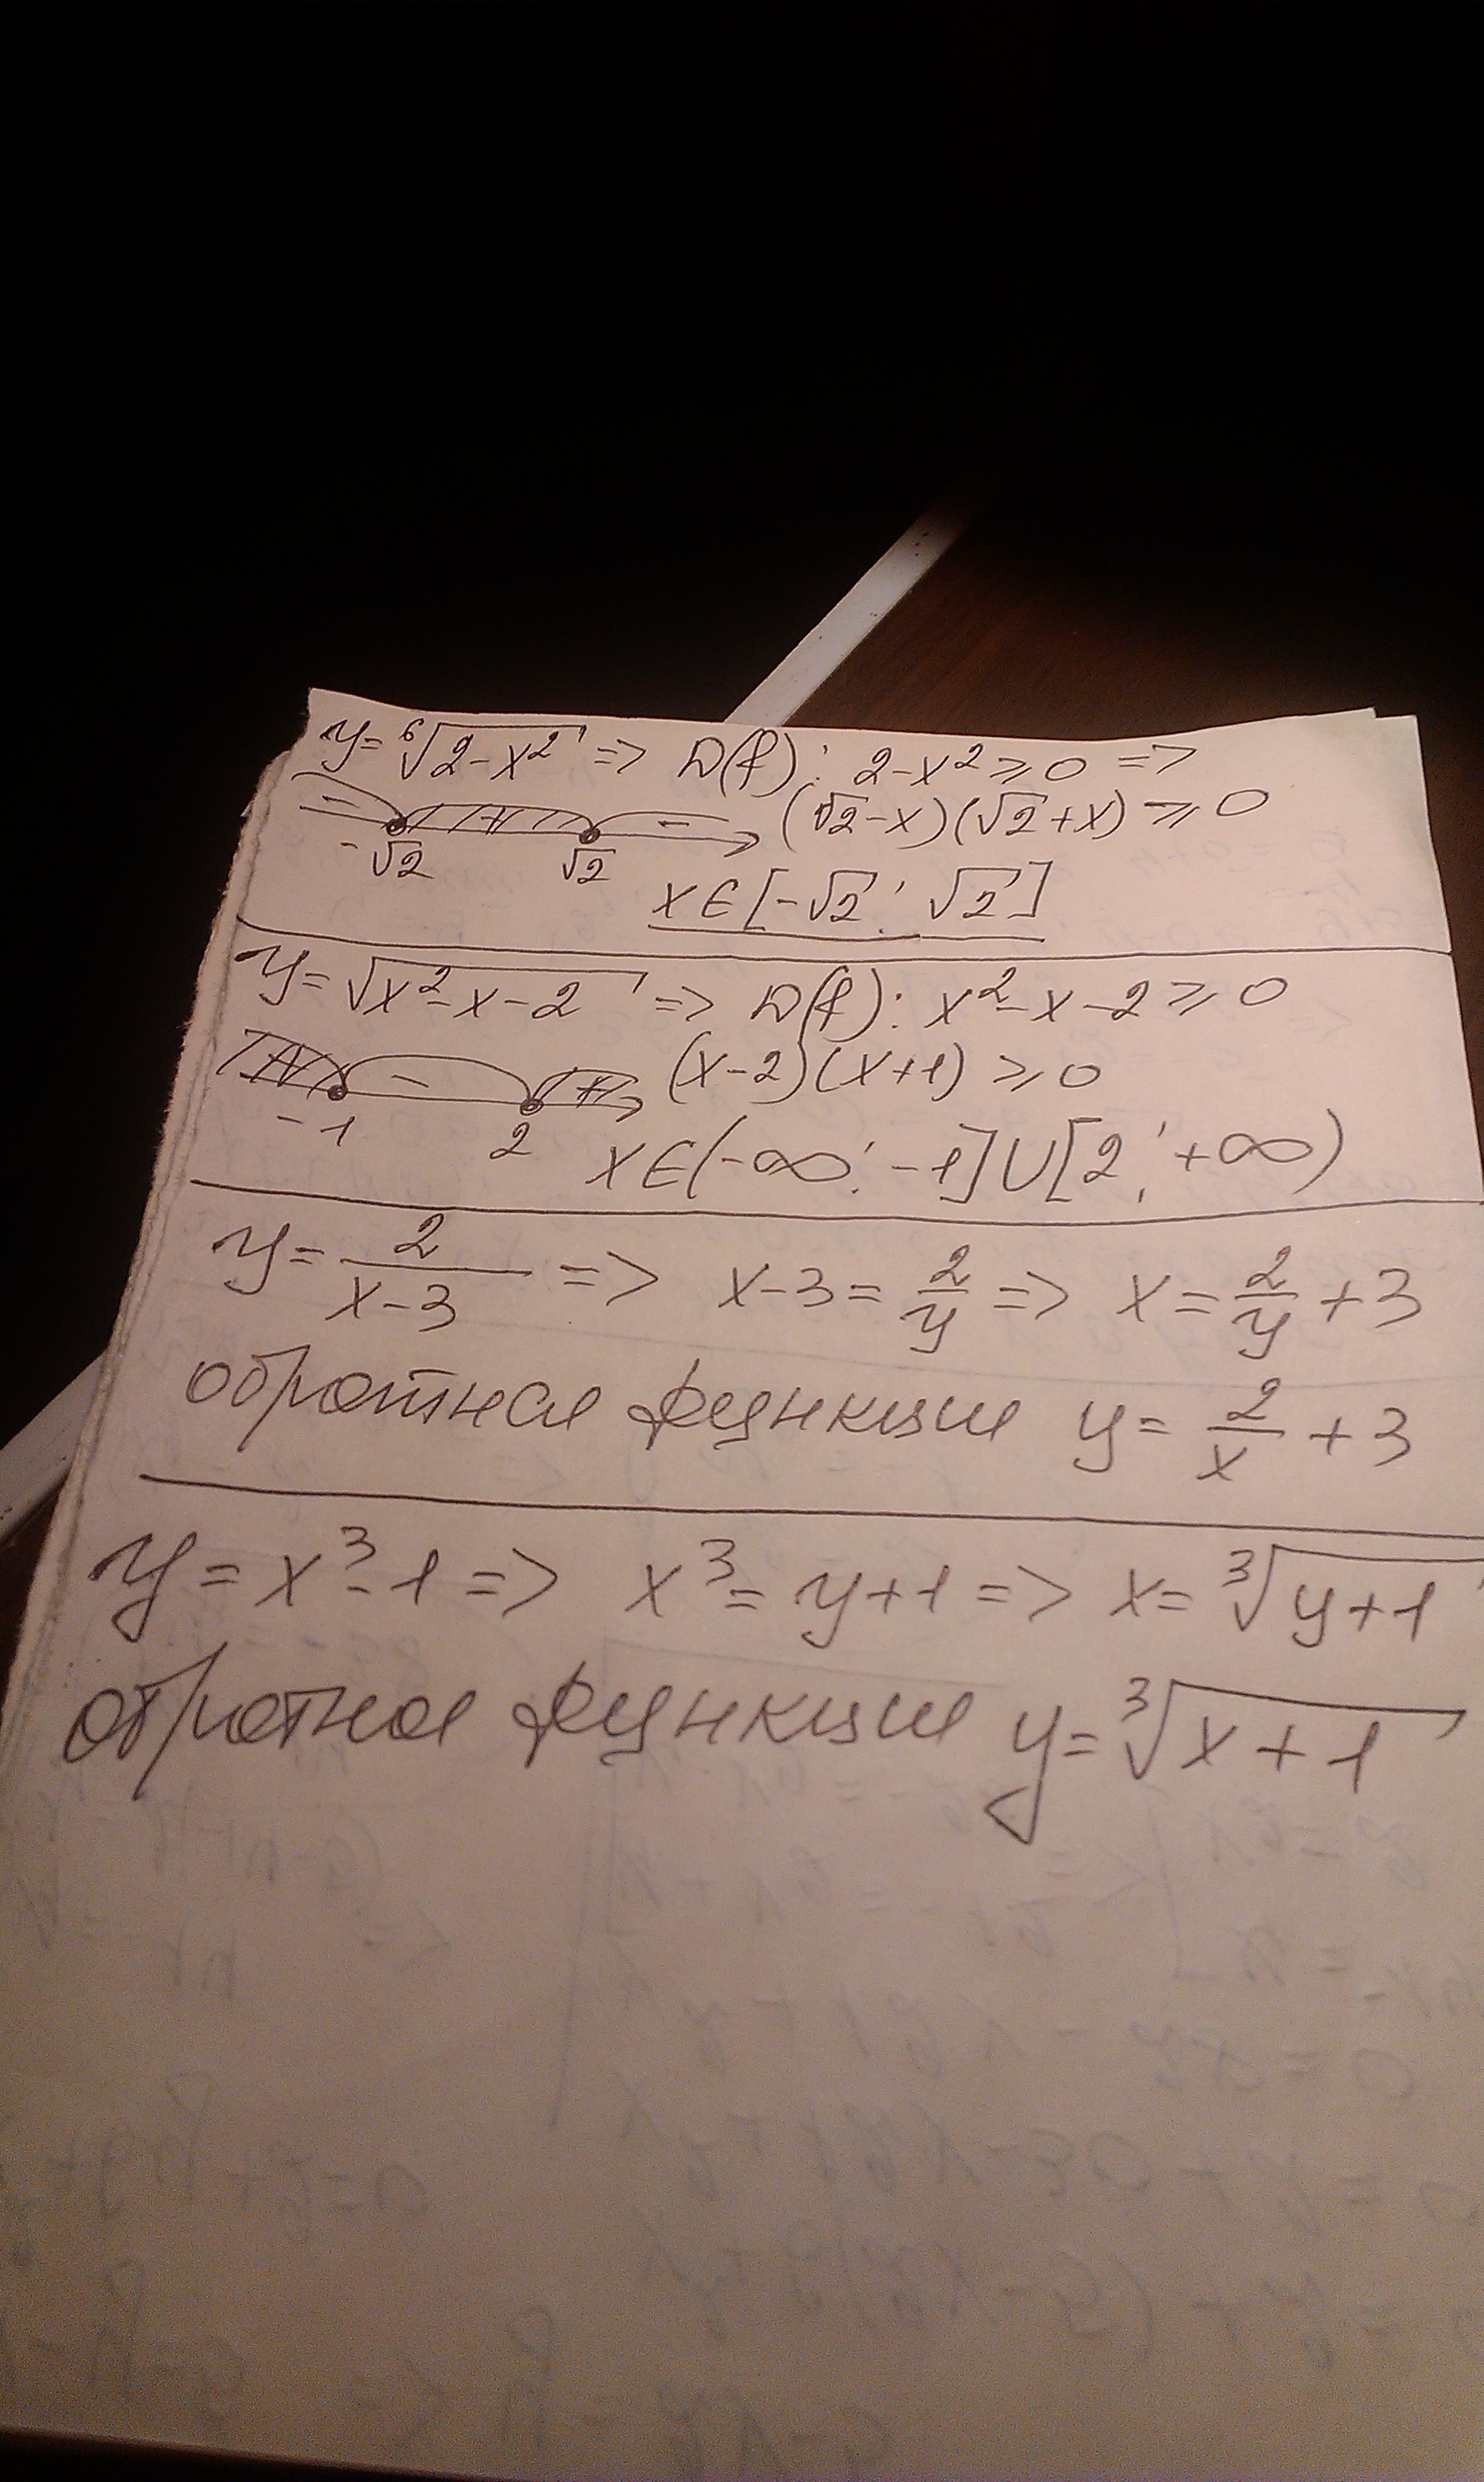 y = ⁶√(2-x²) => D(f): 2-x² ⩾ 0 =>
(√2-x)(√2+x) ⩾ 0
- + -
-√2 √2
x ∈ [-√2; √2]
y = √(x²-x-2) => D(f): x²-x-2 ⩾ 0
+ - + (x-2)(x+1) ⩾ 0
-1 2
x ∈ (-∞; -1] ∪ [2; +∞)
y = 2/(x-3) => x-3 = 2/y => x = 2/y + 3
обратная функция y = 2/x + 3
y = x³-1 => x³ = y+1 => x = ³√(y+1)
обратная функция y = ³√(x+1)